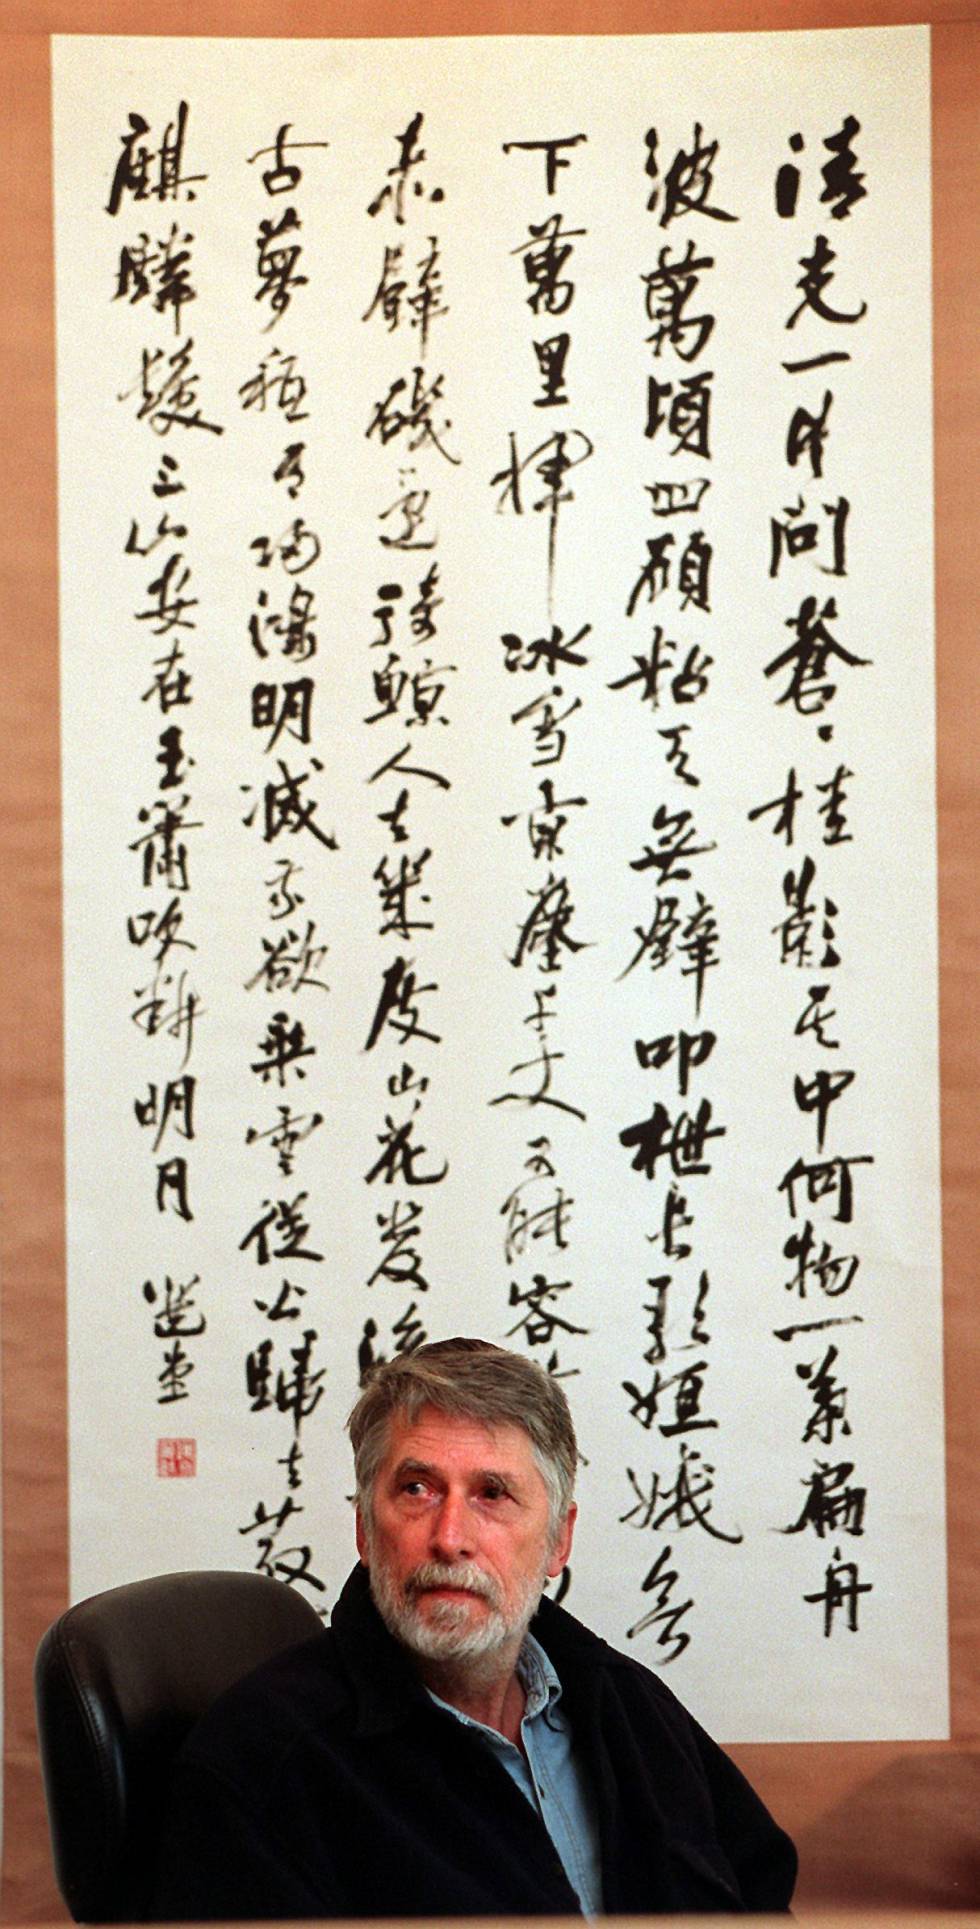 清光一片問蒼々桂影其中何物一葉扁舟
波萬頃四顧粘天無壁叩枻長歌姮娥欲
下萬里揮冰雪京塵千丈可能容
赤壁磯邊騎鯨人去幾度山花發
古夢秖有歸鴻明滅我欲乘雲從公歸去散
麒麟髮三山安在玉簫吹斷明月 選堂